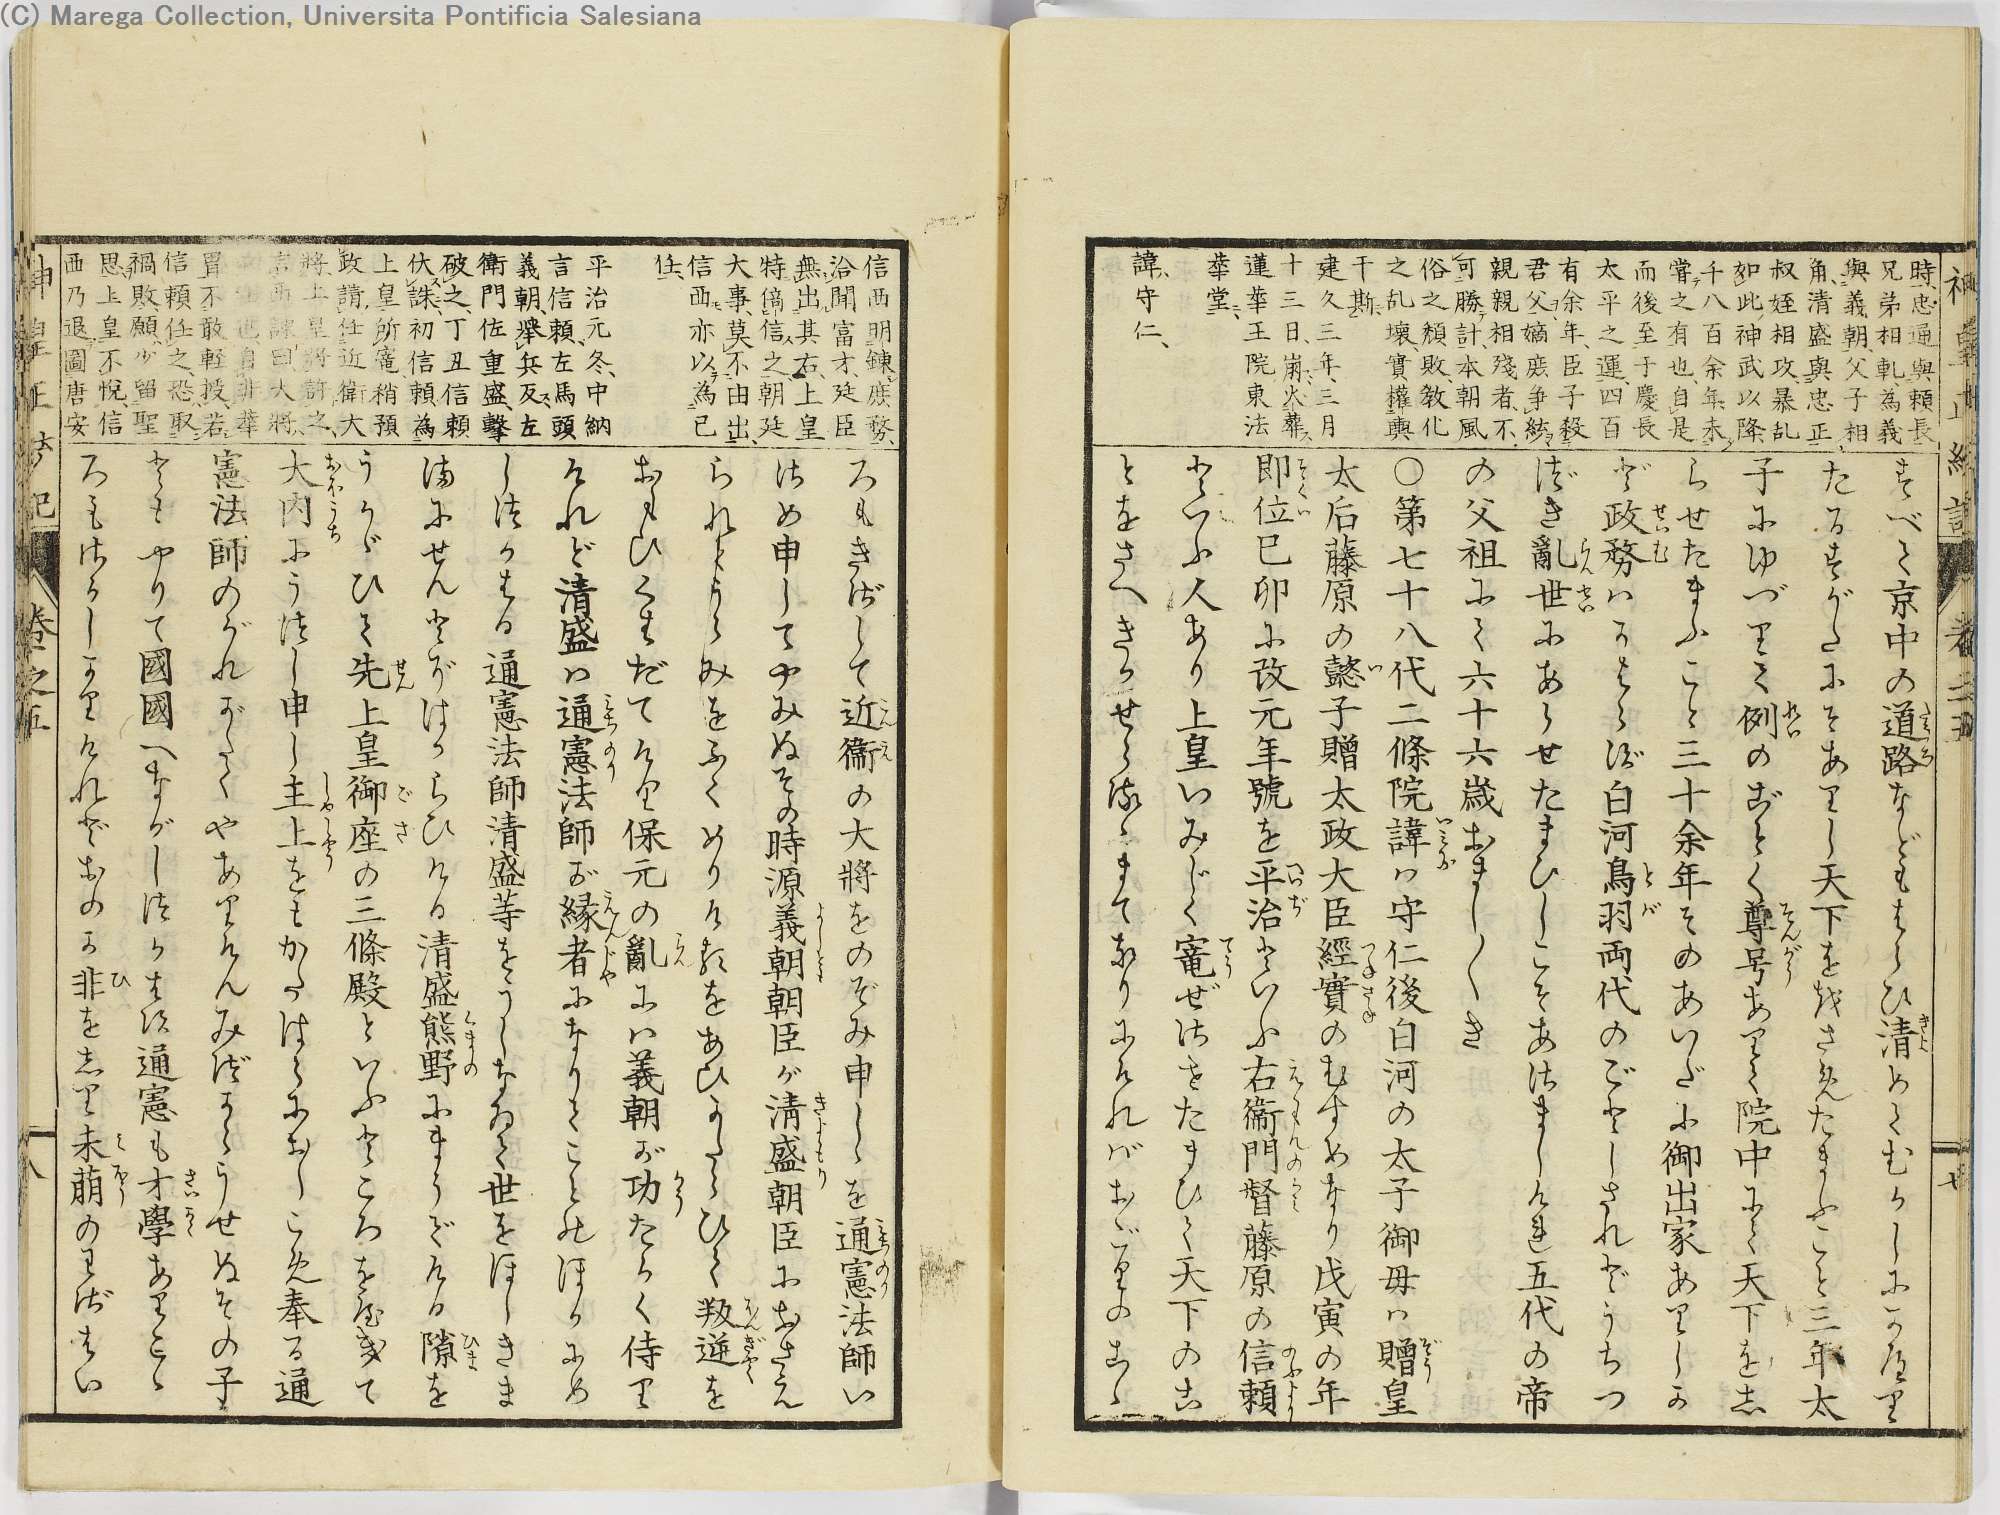 (C) Marega Collection, Universita Pontificia Salesiana
時、忠通與頼長
兄弟相軋、為義
與義朝、父子相
角、清盛與忠正、
叔姪相攻、暴乱
如此、神武以降
千八百余年、未
嘗之有也、自是
而後至于慶長
太平之運、四百
有余年、臣子殺
君父、嫡庶争統、
親親相殘者、不
可勝計、本朝風
俗之頽敗、敎化
之乱壞實權輿
干斯、
建久三年、三月
十三日、崩、火葬
蓮華王院東法
華堂、
諱、守仁、
すべて京中の道路などもはらひ清めてむかしにかへり
たるすがたにぞありし天下を執さ免たまふこと三年太
子にゆづりて例のごとく尊号ありて院中にて天下を志
らせたまふこと三十余年そのあいだに御出家ありしか
ど政務はかはらず白河鳥羽両代のごとしされどうちつ
づき亂世にあはせたまひしこそあさましけれ五代の帝
の父祖にて六十六歳おまし〳〵き
○第七十八代二條院諱は守仁後白河の太子御母は贈皇
太后藤原の懿子贈太政大臣經實のむすめなり戊寅の年
即位己卯に改元年號を平治といふ右衛門督藤原の信頼
といふ人あり上皇いみじく寵ぜさせたまひて天下のこ
とをさへきかせらるゝまてなりにければおごりのこゝ
信西明錬庶務、
洽聞富才、廷臣
無出其右、上皇
特偏信之、朝廷
大事、莫不由出、
信西亦以為己
任、
平治元冬、中納
言信頼、左馬頭
義朝、擧兵反、左
衛門佐重盛、擊
破之、丁丑信頼
伏誅、初信頼為
上皇所寵、稍預
政請任近衛大
將、上皇將許之、
信西諫曰、大將、
冑不敢軽授、若
信頼任之、恐取
禍敗、願少留聖
思、上皇不悅、信
西乃退圖唐安
ろもきざして近衞の大將をのぞみ申しゝを通憲法師い
さめ申してやみぬその時源義朝朝臣が清盛朝臣におさへ
られてうらみをふくめりけるをあひかたらひて叛逆を
おもひくはだてけり保元の亂には義朝が功たかく侍り
けれど清盛は通憲法師が縁者になりてことのほかにめ
しつかはる通憲法師清盛等をうしなゐて世をほしきま
まにせんとぞはからひける清盛熊野にまうでける隙を
うかゞひて先上皇御座の三條殿といふところをやきて
大内にうつし申し主上をもかたはらにおしこめ奉る通
憲法師のがれがたくやありけんみづからうせぬその子
どもやりて國國へながしつかはす通憲も才學ありこゝ
ろもさかしかりけれどおのか非を志り未萠のわざはい
神皇正統記　卷之五
七
八